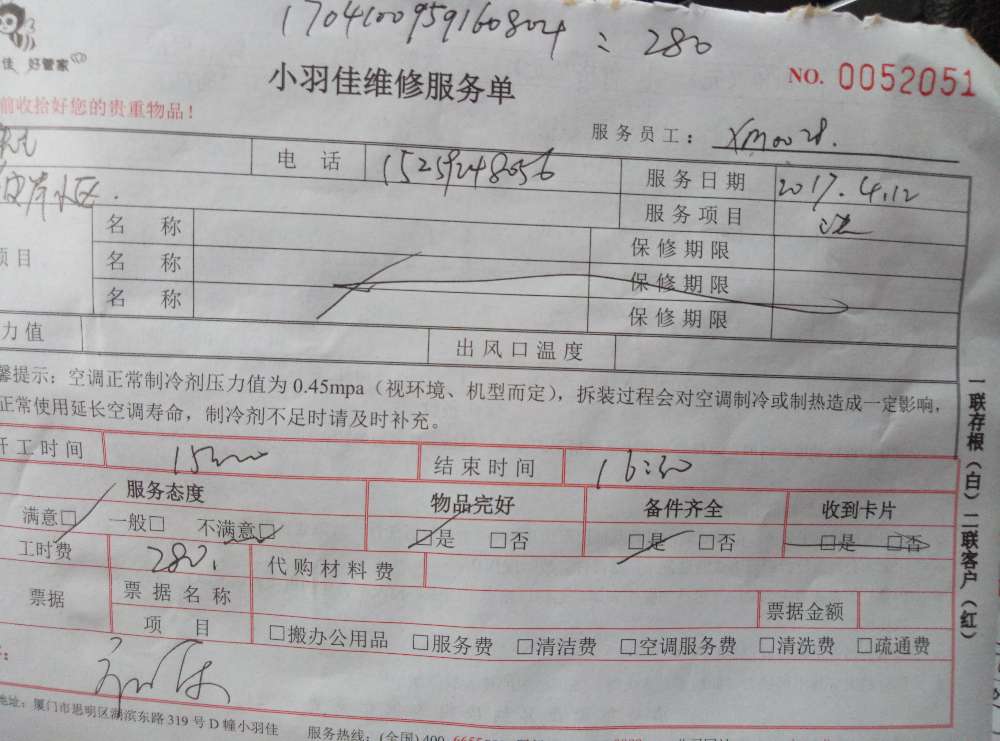 1704100959160804：280
佳 好管家
小羽佳维修服务单
NO. 0052051
前收拾好您的贵重物品！
服务员工： XM0028.
电 话 15259248056 服务日期 2017.4.12
岸小区. 服务项目
名 称 保修期限
项目 名 称 保修期限
名 称 保修期限
力值 出风口温度
馨提示：空调正常制冷剂压力值为 0.45mpa（视环境、机型而定），拆装过程会对空调制冷或制热造成一定影响，
正常使用延长空调寿命，制冷剂不足时请及时补充。
开工时间 15:00 结束时间 16:30
服务态度 物品完好 备件齐全 收到卡片
满意□ 一般□ 不满意□ □是 □否 □是 □否 □是 □否
工时费 280. 代购材料费
票据 票据名称 票据金额
项 目 □搬办公用品 □服务费 □清洁费 □空调服务费 □清洗费 □疏通费
地址：厦门市思明区湖滨东路 319 号 D 幢小羽佳 服务热线：(全国) 400
一联存根（白）二联客户（红）